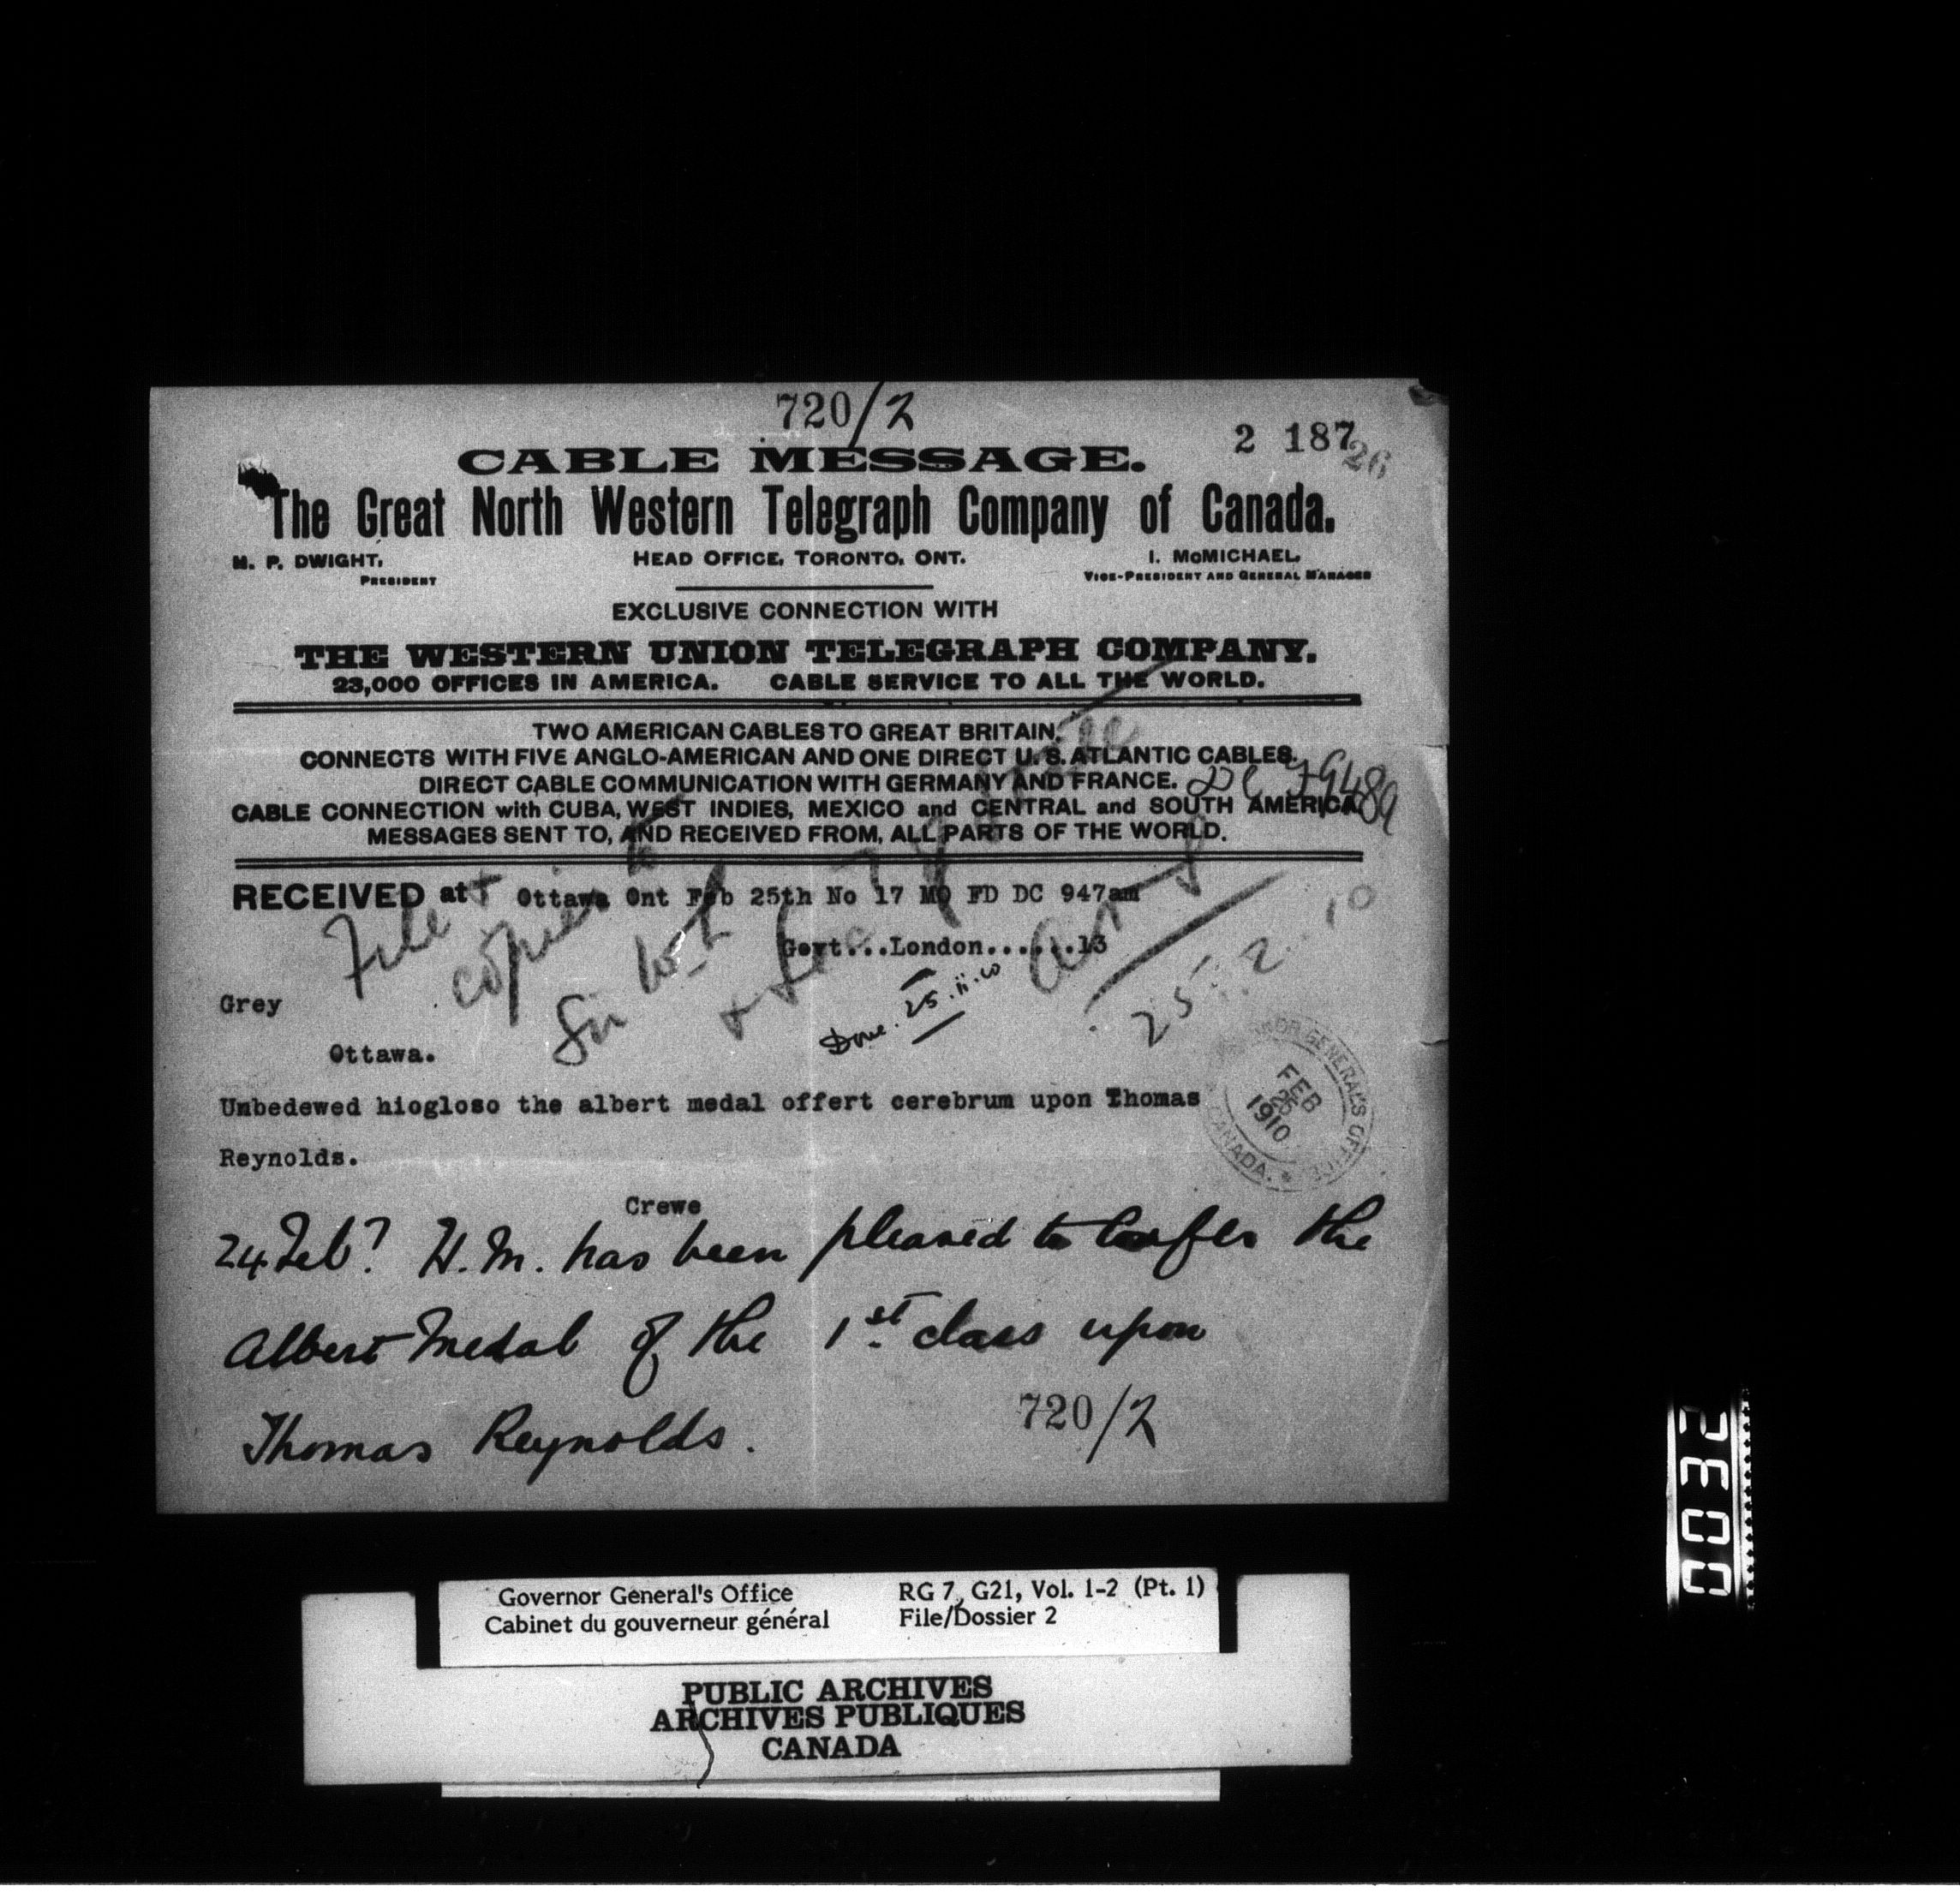 720/2
2 187
26
CABLE MESSAGE.
The Great North Western Telegraph Company of Canada.
H. P. DWIGHT, HEAD OFFICE, TORONTO, ONT. I. McMICHAEL,
PRESIDENT VICE-PRESIDENT AND GENERAL MANAGER
EXCLUSIVE CONNECTION WITH
THE WESTERN UNION TELEGRAPH COMPANY.
23,000 OFFICES IN AMERICA. CABLE SERVICE TO ALL THE WORLD.
TWO AMERICAN CABLES TO GREAT BRITAIN.
CONNECTS WITH FIVE ANGLO-AMERICAN AND ONE DIRECT U. S. ATLANTIC CABLES.
DIRECT CABLE COMMUNICATION WITH GERMANY AND FRANCE.
CABLE CONNECTION with CUBA, WEST INDIES, MEXICO and CENTRAL and SOUTH AMERICA
MESSAGES SENT TO, AND RECEIVED FROM, ALL PARTS OF THE WORLD.
RECEIVED at Ottawa Ont Feb 25th No 17 MQ FD DC 947am
File + copies to
Govt...London......13
Done. 25.ii.10
25.2.10
Grey
Ottawa.
Unbedewed hiogloso the albert medal offert cerebrum upon Thomas
Reynolds.
GOVERNOR GENERAL'S OFFICE
FEB
25
1910
CANADA.
Crewe
24 Feb? H.M. has been pleased to confer the
Albert Medal of the 1st class upon
Thomas Reynolds.
720/2
Governor General's Office RG 7, G21, Vol. 1-2 (Pt. 1)
Cabinet du gouverneur général File/Dossier 2
PUBLIC ARCHIVES
ARCHIVES PUBLIQUES
CANADA
0032